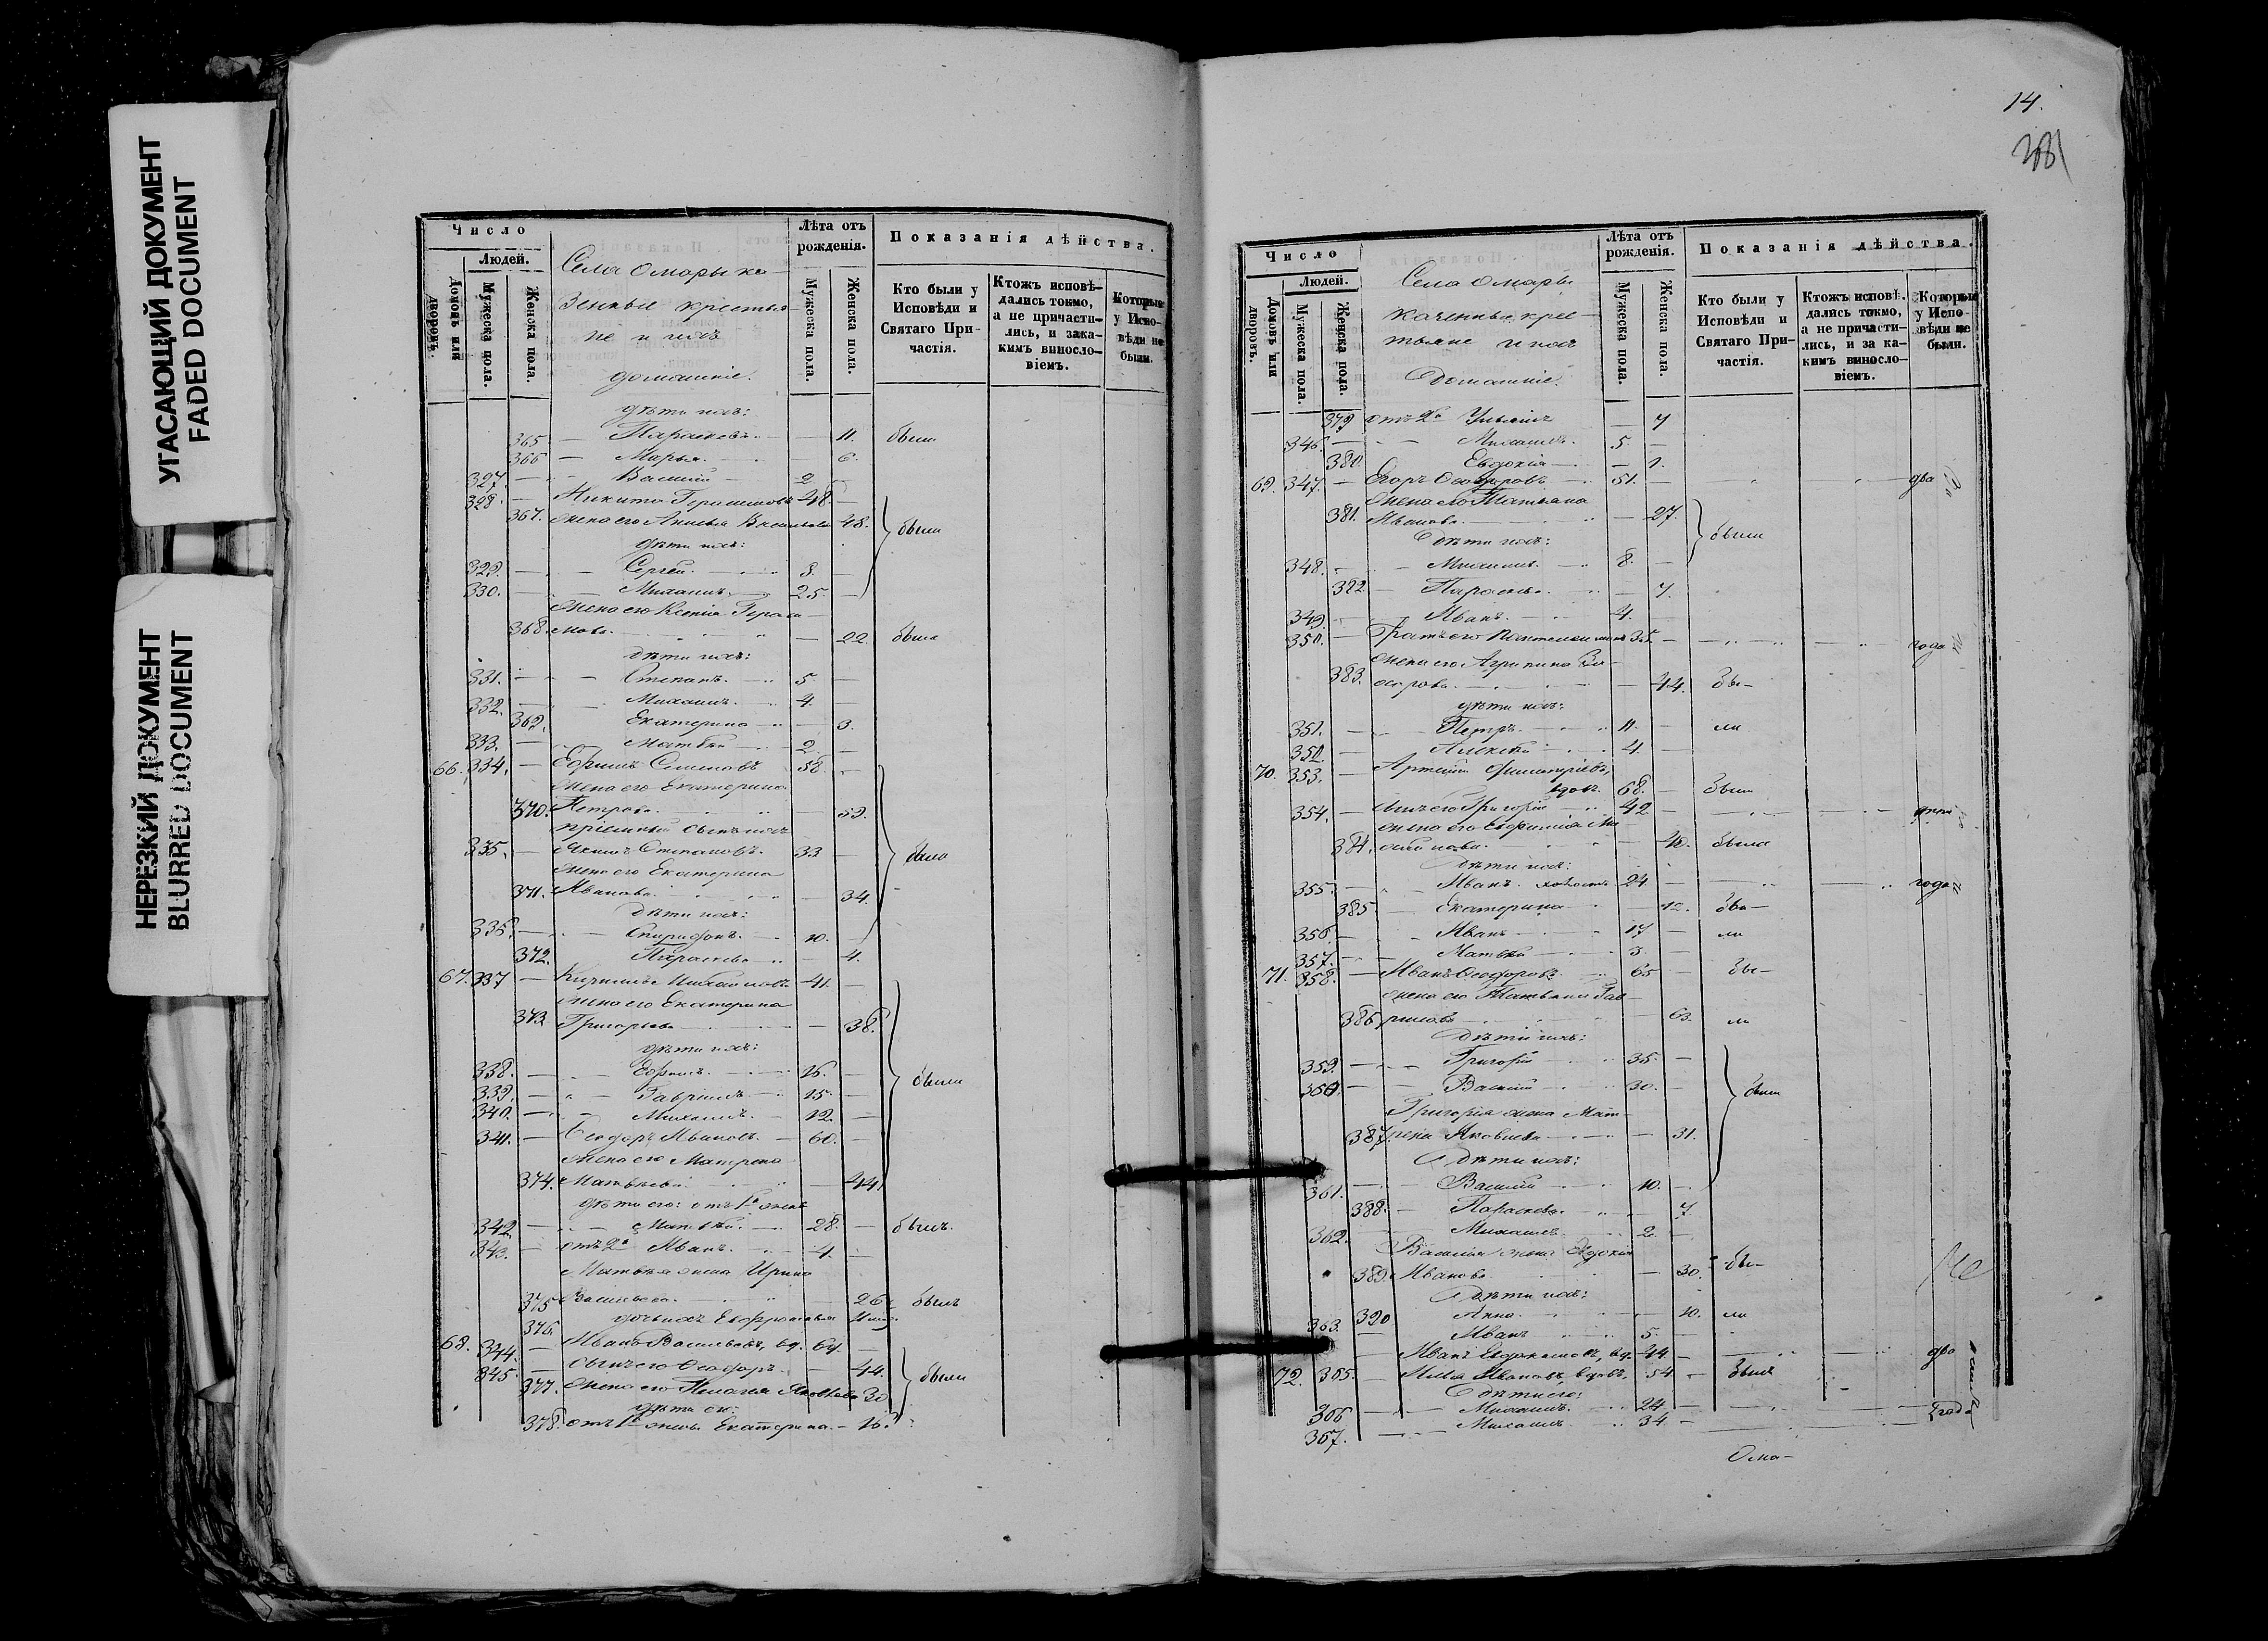 УГАСАЮЩИЙ ДОКУМЕНТ
FADED DOCUMENT
НЕРЕЗКИЙ ДОКУМЕНТ
BLURRED DOCUMENT
Число
Людей.
Домовъ или дворовъ.
Мужеска пола.
Женска пола.
Села Омары ка-
зенные крестья-
не и ихъ
домашніе.
Лѣта отъ рожденія.
Мужеска пола.
Женска пола.
Показанія дѣйства.
Кто были у Исповѣди и Святаго При-частія.
Ктожъ исповѣ-дались токмо, а не причасти-лись, и зака-кимъ винословіемъ.
Которые у Испо-вѣди не были.
дѣти ихъ:
365. — Параскева — 11. были
366 — Марья — 6.
327. — Василій — 2
328. — Никита Герасимовъ 48. —
367. жена его Васильева 48. были
дѣти ихъ:
329. — Сергей. — 8. —
330. — Михаилъ. — 25. —
жена его Ксенія Гераси-
368. мова. — 22. была
дѣти ихъ:
331. — Степанъ. — 5. —
332. — Михаилъ. — 4. —
369. Екатерина — 3.
333. — Матвѣй — 2. —
66. 334. — Ефимъ Семеновъ 58. —
жена его Екатерина
370. Петрова. — 59.
пріемный сынъ ихъ
335. — Степановъ. 33 — были
жена его Екатерина
371. Иванова. — 34.
дѣти ихъ:
336. — Спиридонъ. — 10. —
372. Параскева — 4.
67. 337 — Кириллъ Михайловъ 41. —
жена его Екатерина
373 Григорьева — 38.
дѣти ихъ:
338. — Ефимъ. — 16. — были
339. — Гавріилъ — 15. —
340. — Михаилъ. — 12. —
341. — Ѳеодоръ Ивановъ. — 60. —
жена его Матрена
374. Матвѣева — 44.
дѣти его: отъ 1й жены
342. — Матвѣй. — 28. — былъ.
343. — отъ 2й Иванъ. — 4. —
Матвѣя жена Ирина
375 Васильева. — 26. была
376. дочь ихъ Евфросинья
68. 344. — Иванъ Васильевъ, вд. 64. —
345. — сынъ его Ѳеодоръ. — 44. были
377. жена его Пелагея Яковлева 30
дѣти его:
378. отъ 1й жены Екатерина. — 16.
14.
381
Число
Людей.
Домовъ или дворовъ.
Мужеска пола.
Женска пола.
Села Омары
казенные крес-
тьяне и ихъ
Домашніе.
Лѣта отъ рожденія.
Мужеска пола.
Женска пола.
Показанія дѣйства.
Кто были у Исповѣди и Святаго При-частія.
Ктожъ исповѣ-дались токмо, а не причасти-лись, и за ка-кимъ винословіемъ.
Которые у Испо-вѣди не были.
379 отъ 2й — 7
346. — Михаилъ. 5. —
380. Евдокія — 1.
69. 347. — Егоръ Ѳеодоровъ 51. — два
жена его Татьяна
381. Иванова. — 27.
дѣти ихъ: были
348. — Михаилъ. 8. —
382 — Параскева. — 7.
349. — Иванъ. 4. —
350. — Братъ его Пантелеимонъ 35. — года
жена его Агрипина
383. — 44. бы-
дѣти ихъ:
351. — Петръ. — 11. — ли
352 — Алексѣй — 4. —
70. 353. — Артемій Димитріевъ,
вдовъ. 68. — былъ
354. — сынъ его Григорій — 42
жена его
384. — 40. была
дѣти ихъ:
355. — Иванъ. холостъ 24 — года
385. — Екатерина — 12. бы-
356. — Иванъ — 17 — ли
357. — Матвѣй — 3 —
71. 358. — Иванъ Ѳеодоровъ 65 — бы-
жена его Татьяна Гав-
386 рилова — 63. ли
дѣти ихъ:
359. — Григорій 35. —
360 — Василій 30. — были
Григорія жена Мат-
387. рена Яковлева — 31.
дѣти ихъ:
361. — Василій 10. —
388. — Параскева. — 7
362. Михаилъ. 2. —
Василія жена Евдокія
389. Иванова — 30. бы-
дѣти ихъ:
390 Анна — 10. ли
363. — Иванъ 5. —
— Иванъ вд. 44 — два
72. 365. — Илья Ивановъ вдовъ, 54 — былъ
дѣти его:
366 — Михаилъ. 24 —
367. — Михаилъ 34 — года